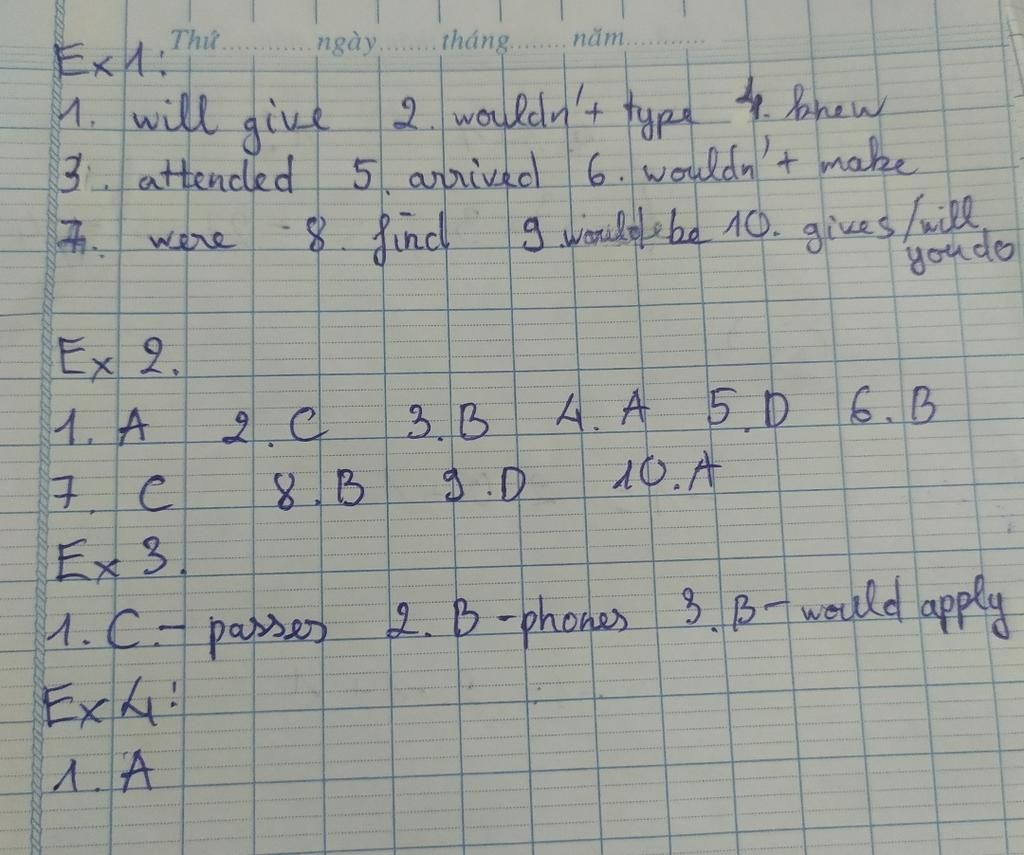 Thứ............ngày........tháng.......năm...........
Ex 1:
1. will give 2. wouldn't type 4. knew
3. attended 5. arrived 6. wouldn't make
7. were 8. find 9 would be 10. gives/will
you do
Ex 2.
1. A 2. C 3. B 4. A 5. D 6. B
7. C 8. B 9. D 10. A
Ex 3.
1. C - passes 2. B - phones 3. B - would apply
Ex 4:
1. A